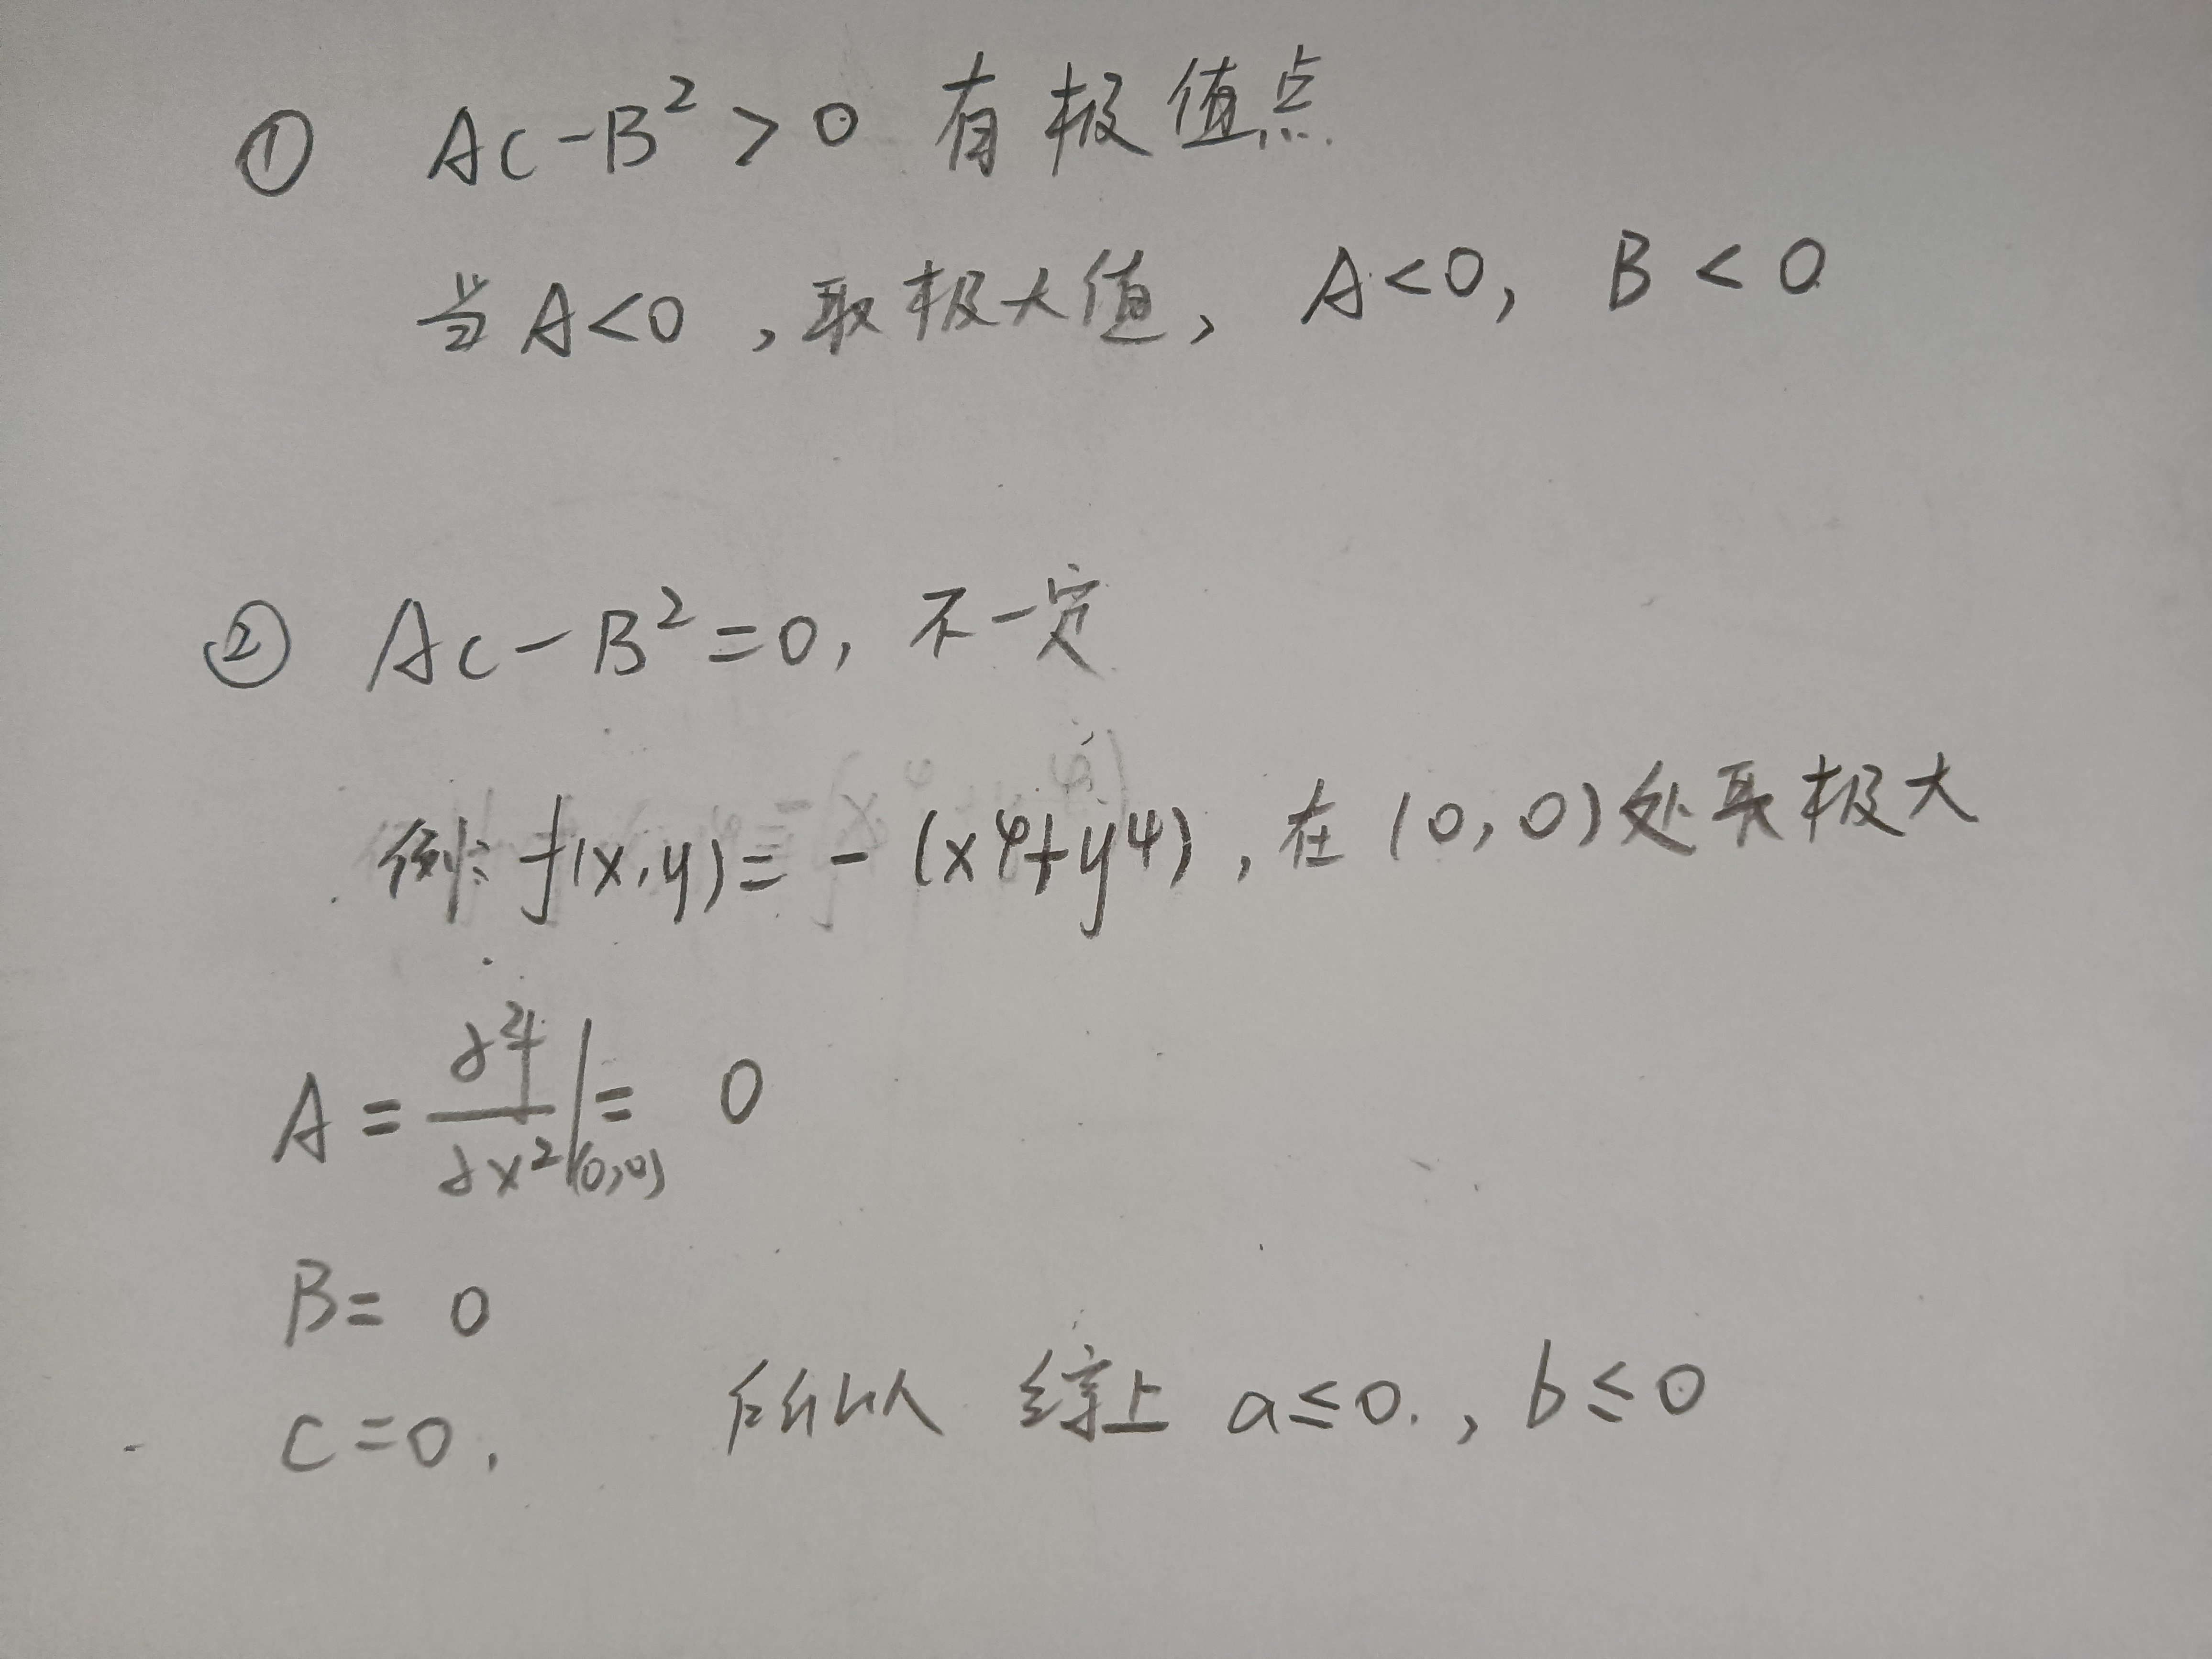 ① AC-B²>0 有极值点
当A<0,取极大值, A<0, B<0
② AC-B²=0, 不一定
例: f(x,y)=-(x⁴+y⁴),在(0,0)处取极大
A=∂²f/∂x²|(0,0)=0
B=0
C=0, 所以 综上 a≤0., b≤0